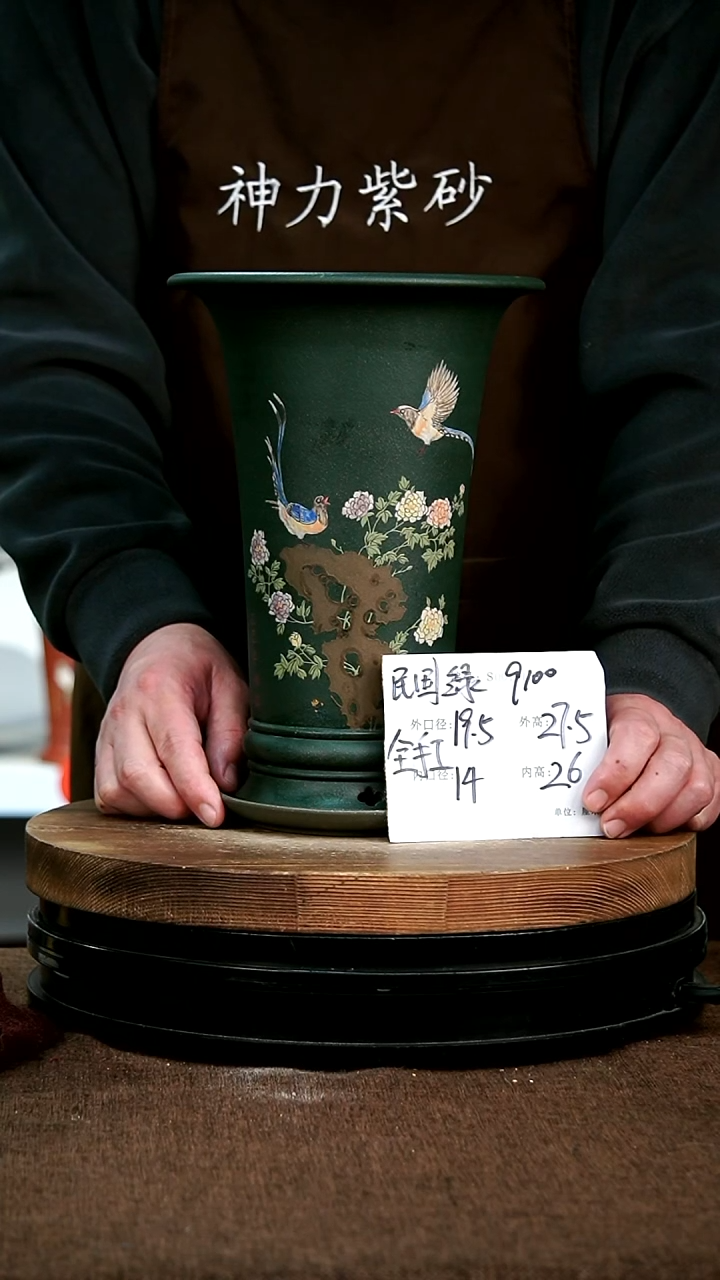 神力紫砂
民国绿 9100
外口径: 19.5 外高: 27.5
全手工
内口径: 14 内高: 26
单位: